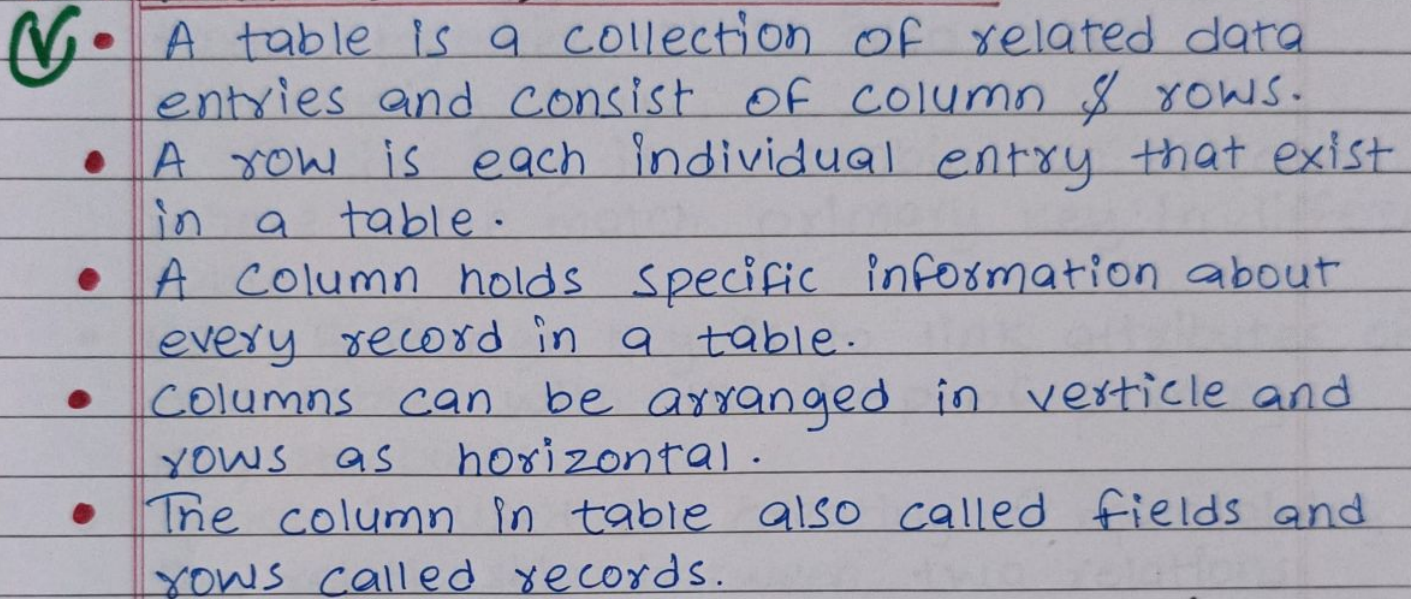 • A table is a collection of related data
entries and consist of column & rows.
• A row is each individual entry that exist
in a table.
• A column holds specific information about
every record in a table.
• Columns can be arranged in verticle and
rows as horizontal.
• The column in table also called fields and
rows called records.